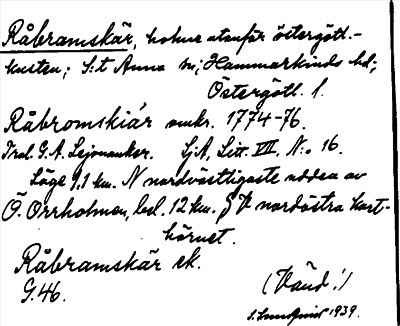 Råbramskär, holme utanför östergötl.-
kusten; S:t Anna sn; Hammarkinds hd;
Östergötl. l.
Råbromskiär omkr. 1774-76.
Trol. G. A. Lejonanker. SjA, Litt. VII, N:o 16.
Läge 1,1 km. N nordvästligaste udden av
Ö. Orrholmen, bel. 12 km. V nordöstra kart-
hörnet.
Råbramskär ek.
G.46.
(Vänd!)
S. Lundqvist 1939.